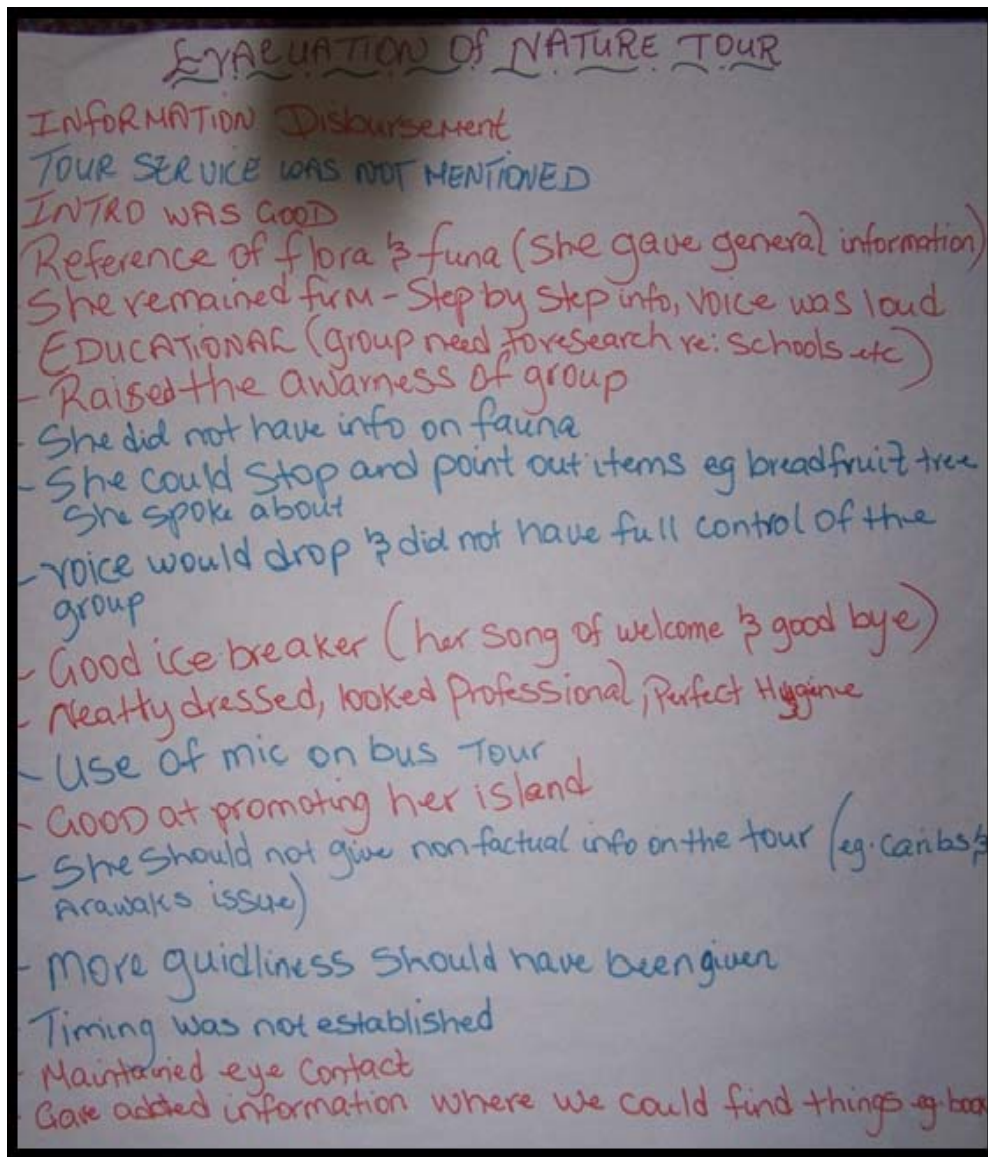 EVALUATION Of NATURE TOUR
INFORMATION Disbursement
TOUR SERVICE WAS NOT MENTIONED
INTRO WAS GOOD
Reference of flora & funa (She gave general information)
She remained firm - Step by Step info, voice was loud
EDUCATIONAL (group need to research re: Schools etc)
- Raised the awarness of group
- She did not have info on fauna
- She could Stop and point out items eg breadfruit tree
She spoke about
- voice would drop & did not have full control of the
group
- Good ice breaker (her song of welcome & good bye)
- Neatty dressed, looked Professional, Perfect Hygine
- Use of mic on bus Tour
- GOOD at promoting her island
- She Should not give non factual info on the tour (eg. caribs &
Arawaks issue)
- More guidliness Should have been given
- Timing was not established
- Maintained eye Contact
- Gave added information where we could find things eg. boo